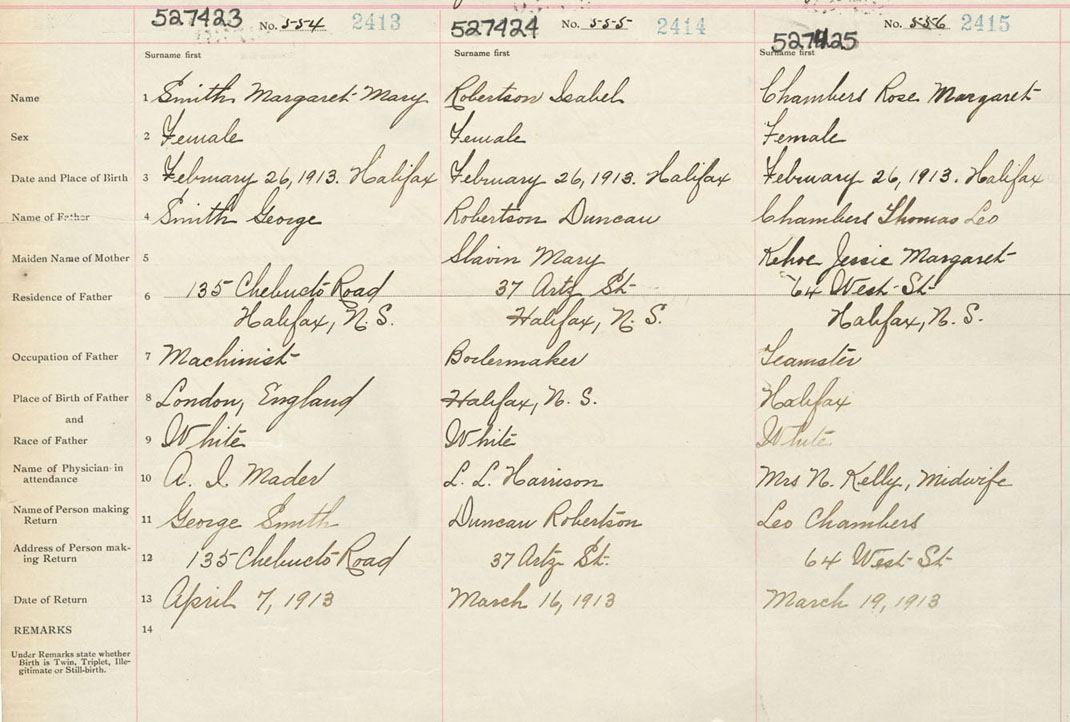 527423 No. 554 2413 527424 No. 555 2414 527425 No. 556 2415
Surname first Surname first Surname first
Name 1 Smith Margaret Mary Robertson Isabel Chambers Rose Margaret
Sex 2 Female Female Female
Date and Place of Birth 3 February 26, 1913. Halifax February 26, 1913. Halifax February 26, 1913. Halifax
Name of Father 4 Smith George Robertson Duncan Chambers Thomas Leo
Maiden Name of Mother 5 Slavin Mary Kehoe Jessie Margaret
Residence of Father 6 135 Chebucto Road 37 Artz St. 64 West St
Halifax, N.S. Halifax, N.S. Halifax, N.S.
Occupation of Father 7 Machinist Boilermaker Teamster
Place of Birth of Father 8 London, England Halifax, N.S. Halifax
and
Race of Father 9 White White White
Name of Physician in
attendance 10 A. I. Mader L. L. Harrison Mrs N. Kelly, Midwife
Name of Person making
Return 11 George Smith Duncan Robertson Leo Chambers
Address of Person mak-
ing Return 12 135 Chebucto Road 37 Artz St. 64 West St
Date of Return 13 April 7, 1913 March 16, 1913 March 19, 1913
REMARKS 14
Under Remarks state whether
Birth is Twin, Triplet, Ille-
gitimate or Still-birth.